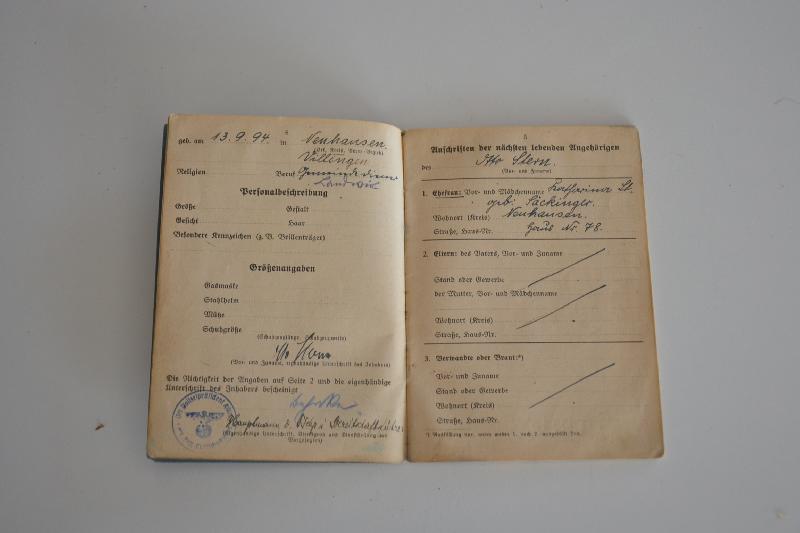 4
geb. am 13. 9. 94. in Neuhausen.
(Ort, Kreis, Verw.-Bezirk)
Villingen
Religion Beruf Gemeindediener
Landwirt
Personalbeschreibung
Größe Gestalt
Gesicht Haar
Besondere Kennzeichen (z. B. Brillenträger)
Größenangaben
Gasmaske
Stahlhelm
Mütze
Schuhgröße
(Schuhzeuglänge, Schuhzeugweite)
Otto Stern
(Vor- und Zuname, eigenhändige Unterschrift des Inhabers)
Die Richtigkeit der Angaben auf Seite 2 und die eigenhändige
Unterschrift des Inhabers bescheinigt
Der Polizeipräsident
Hauptmann d. Schp. u.
(Eigenhändige Unterschrift, Dienstgrad und Dienststellung des
Vorgesetzten)
5
Anschriften der nächsten lebenden Angehörigen
des Otto Stern.
(Vor- und Zuname)
1. Ehefrau: Vor- und Mädchenname Katharina St.
geb. Säckinger.
Wohnort (Kreis) Neuhausen.
Straße, Haus-Nr. Haus Nr. 78.
2. Eltern: des Vaters, Vor- und Zuname
Stand oder Gewerbe
der Mutter, Vor- und Mädchenname
Wohnort (Kreis)
Straße, Haus-Nr.
3. Verwandte oder Braut:*)
Vor- und Zuname
Stand oder Gewerbe
Wohnort (Kreis)
Straße, Haus-Nr.
*) Ausfüllung nur, wenn weder 1. noch 2. ausgefüllt sind.